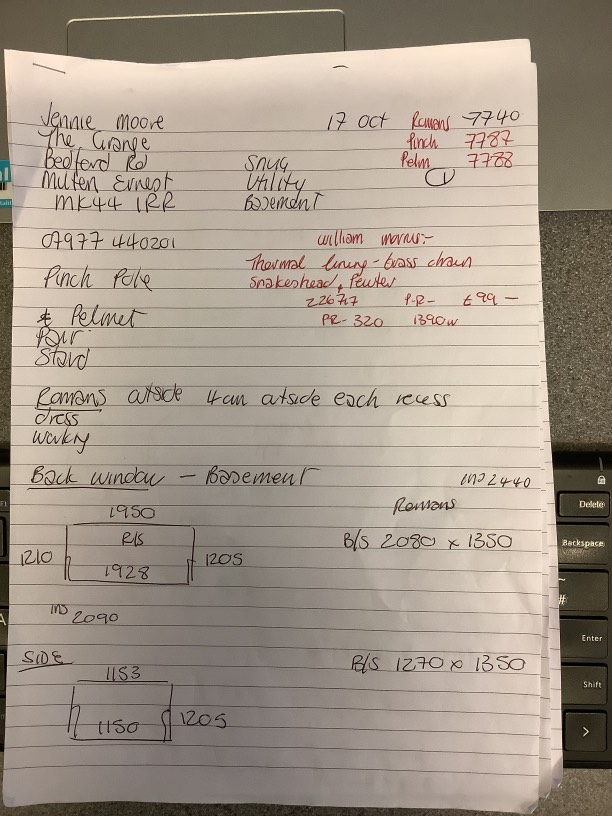 Jennie Moore
17 Oct
Romans 7740
The Grange
Pinch 7787
Bedford Rd
Snug
Pelm 7788
Milten Ernest
Utility
1
MK44 1RR
Basement
07977 440201
William Morris:-
Thermal lining - brass chain
Pinch Pole
Snakeshead, Pewter
226717 P.R- £99 -
& Pelmet
PR- 320 1390w
Pair
Stard
Romans outside 4cm outside each recess
dress
working
Back window - Basement
ins 2440
1950
Romans
R/S
B/S 2080 x 1350
1210
1205
1928
ins 2090
SIDE
B/S 1270 x 1350
1153
1150
1205
Delete
Backspace
~
#
Enter
Shift
>